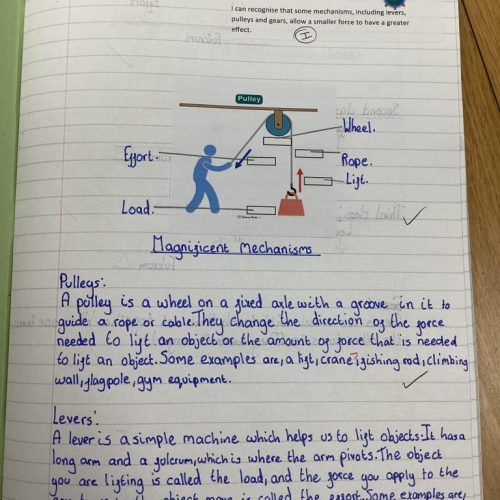 I can recognise that some mechanisms, including levers,
pulleys and gears, allow a smaller force to have a greater
effect.
I
Pulley
Wheel.
Effort.
Rope.
Lift.
Load.
Magnificent Mechanisms
Pulleys:
A pulley is a wheel on a fixed axle with a groove in it to
guide a rope or cable. They change the direction of the force
needed to lift an object or the amount of force that is needed
to lift an object. Some examples are, a lift, crane, fishing rod, climbing
wall, flagpole, gym equipment.
Levers:
A lever is a simple machine which helps us to lift objects. It has a
long arm and a fulcrum, which is where the arm pivots. The object
you are lifting is called the load, and the force you apply to the
object move is called the effort. Some examples are,